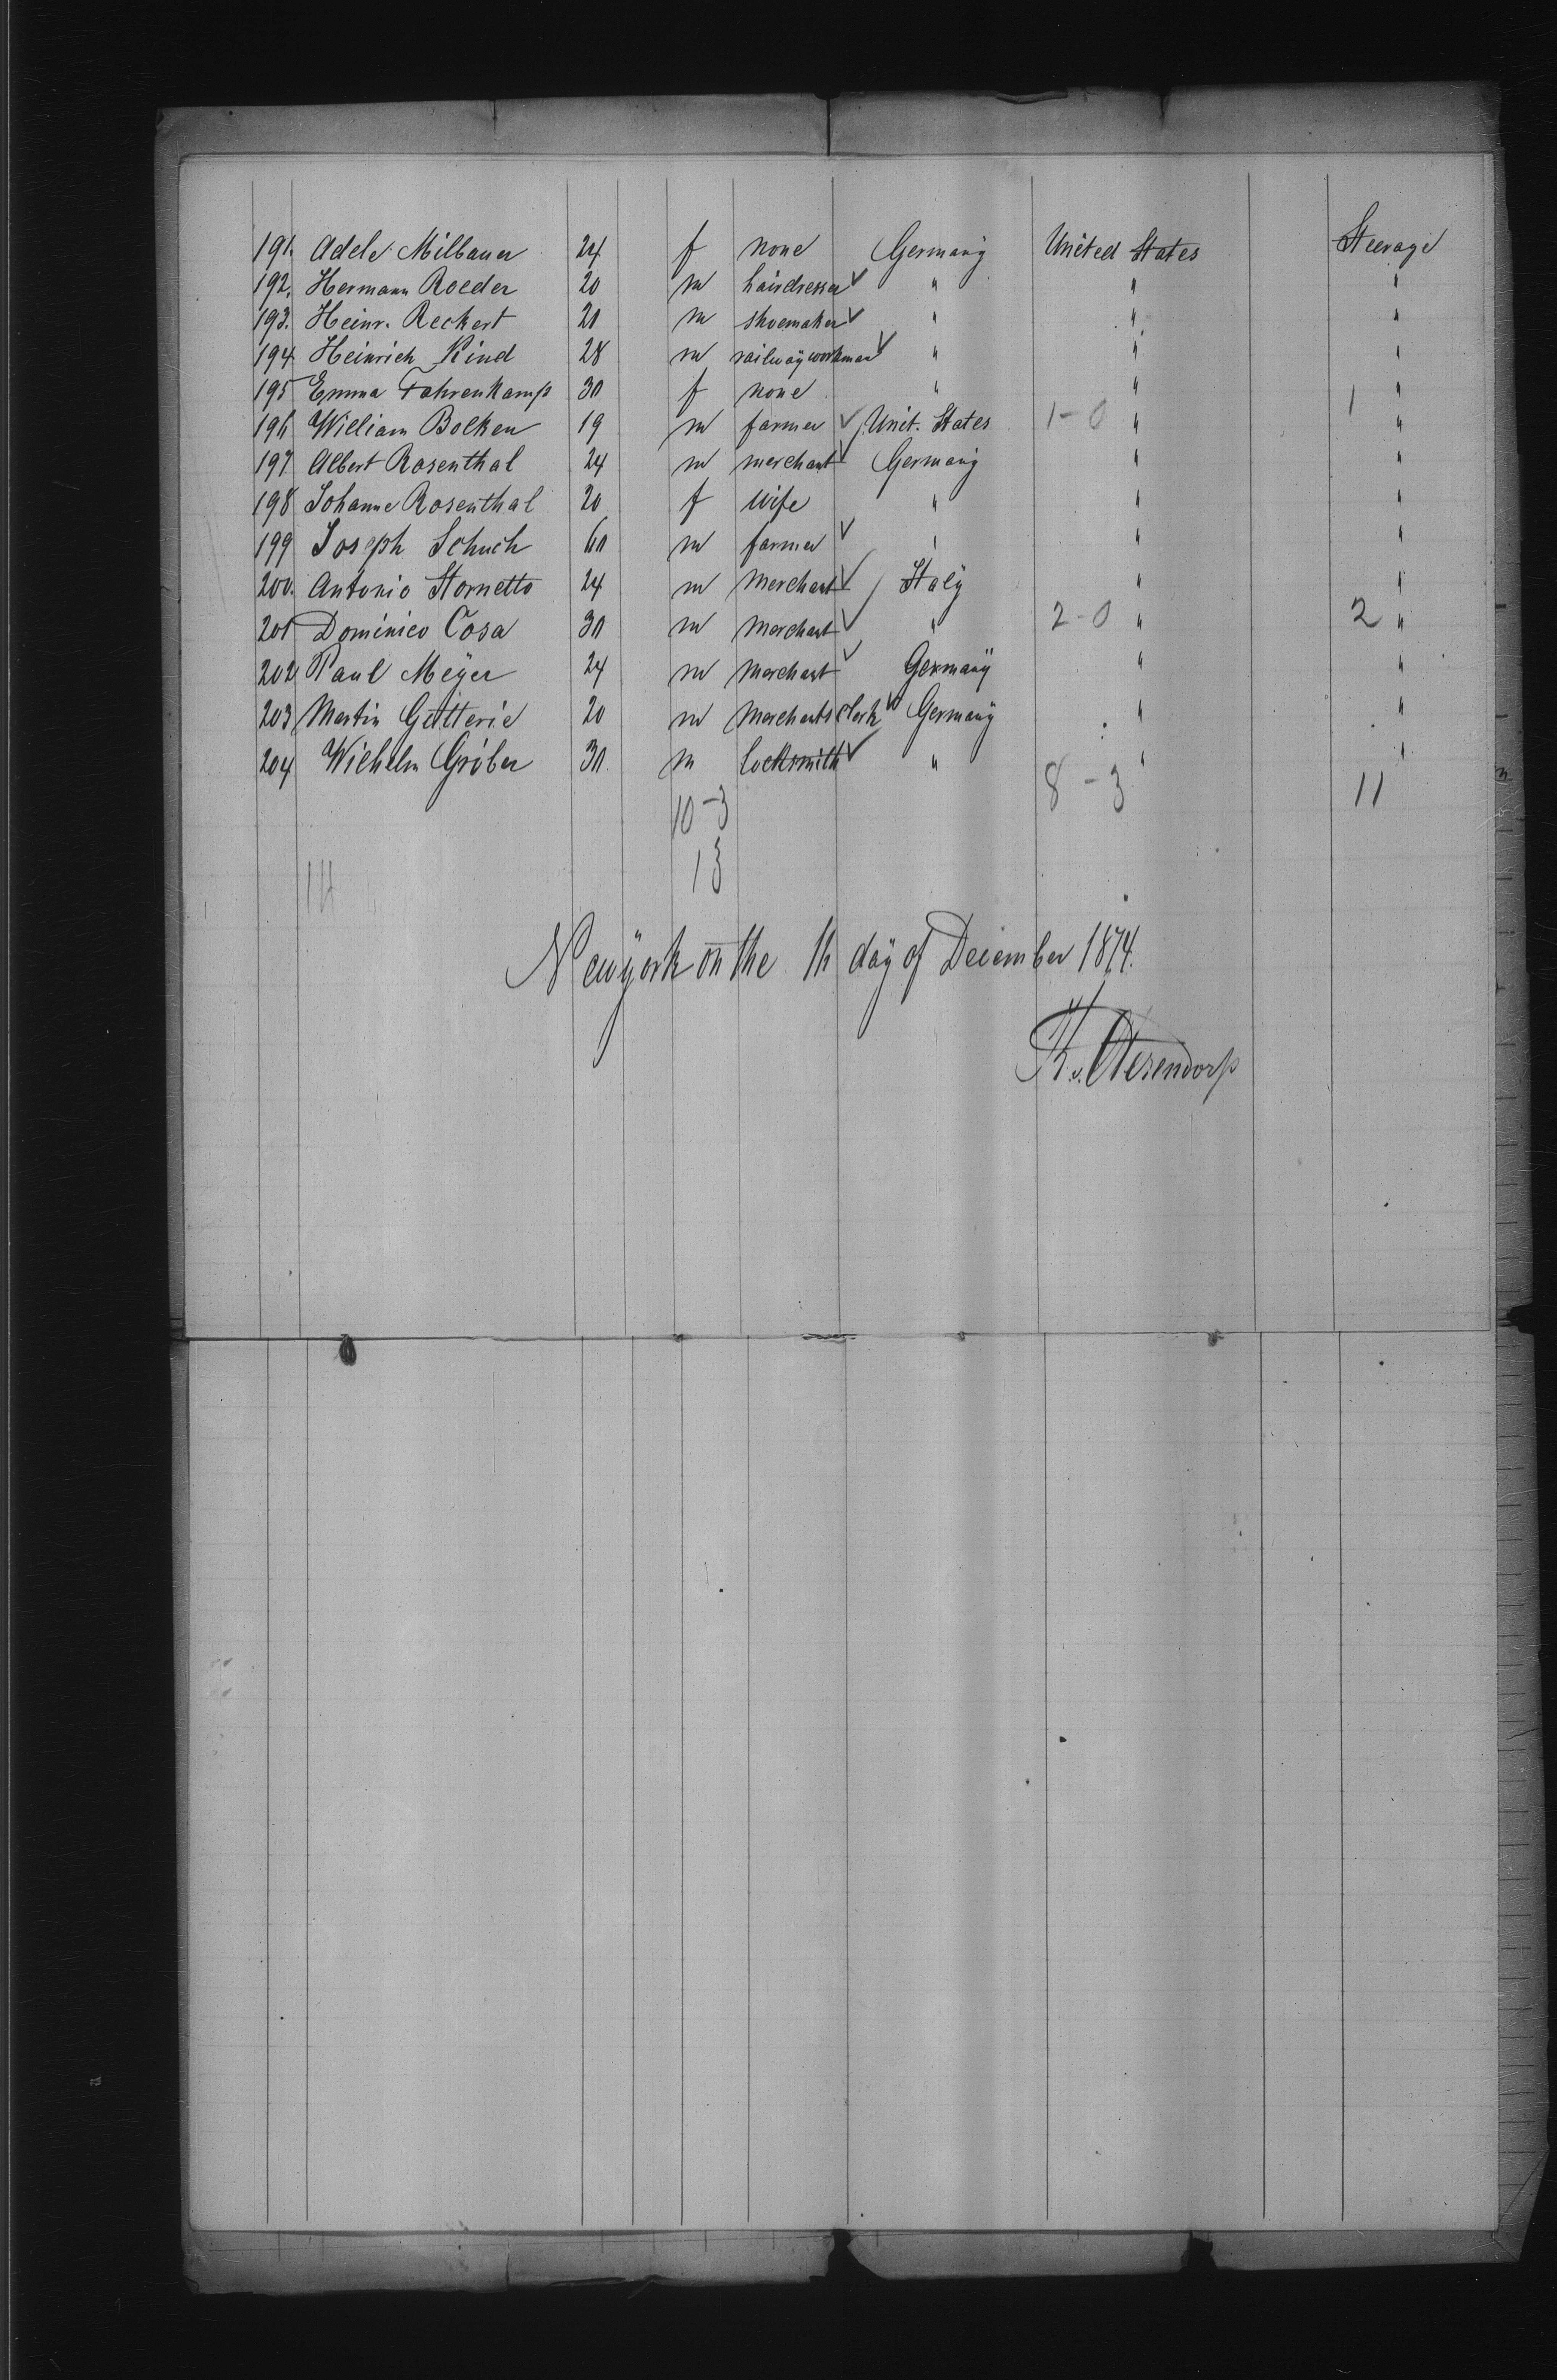 191. Adele Milbauer 24 f none Germany United States Steerage
192. Hermann Roeder 20 m hairdresser " " "
193. Heinr. Reckert 21 m shoemaker " " "
194 Heinrich Kind 28 m railwayworkman " " "
195 Emma Fahrenkamp 30 f none " " "
196 William Bolken 19 m farmer Unit. States 1-0 " 1 "
197 Albert Rosenthal 24 m merchant Germany " "
198 Johanne Rosenthal 20 f wife " " "
199 Joseph Schuch 60 m farmer " " "
200. Antonio Stornetto 24 m Merchant Italy " "
201 Dominico Cosa 30 m Merchant " 2-0 " 2 "
202 Paul Meyer 24 m Merchant Germany " "
203 Martin Gutterie 20 m Merchants clerk Germany " "
204 Wilhelm Gröber 30 m locksmith " " "
10-3 8-3 11
13
14
Newyork on the day of December 1874.